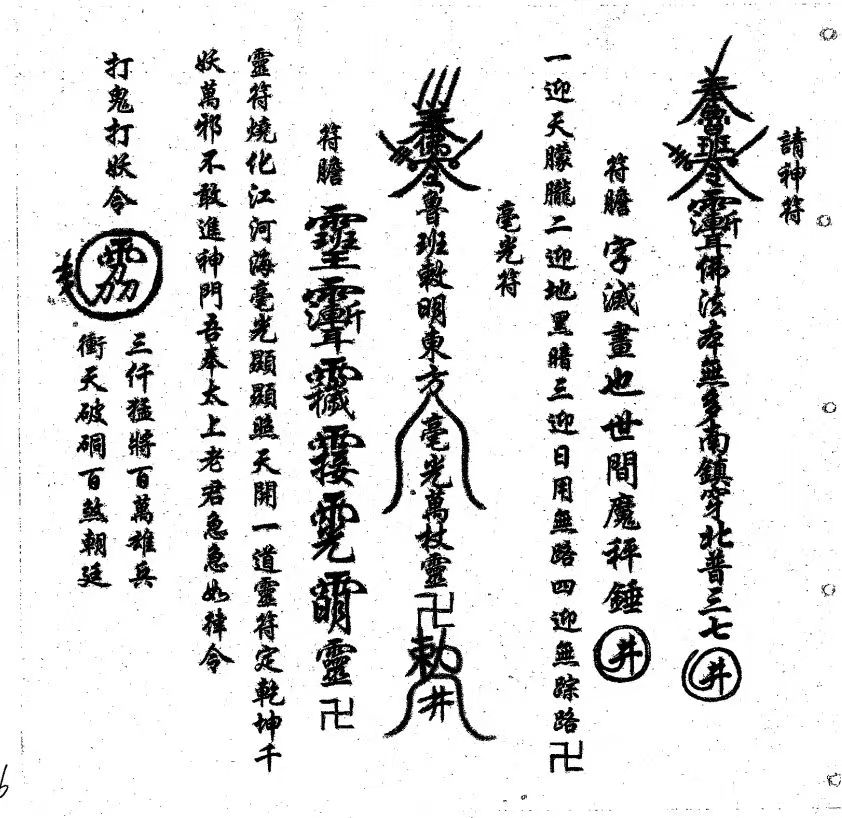 請神符
魯班 佛法本無多南鎮穿北普三七井
符膽 字滅畫也世間魔秤錘井
一迎天朦朧二迎地黑暗三迎日用無路四迎無踪路卍
毫光符
佛令魯班敕明東方毫光萬杖靈卍勅井
符膽 靈卍
靈符燒化江河海毫光顯顯照天開一道靈符定乾坤千
妖萬邪不敢進神門吾奉太上老君急急如律令
打鬼打妖令
三仟猛將百萬雄兵
衝天破硐百煞朝廷